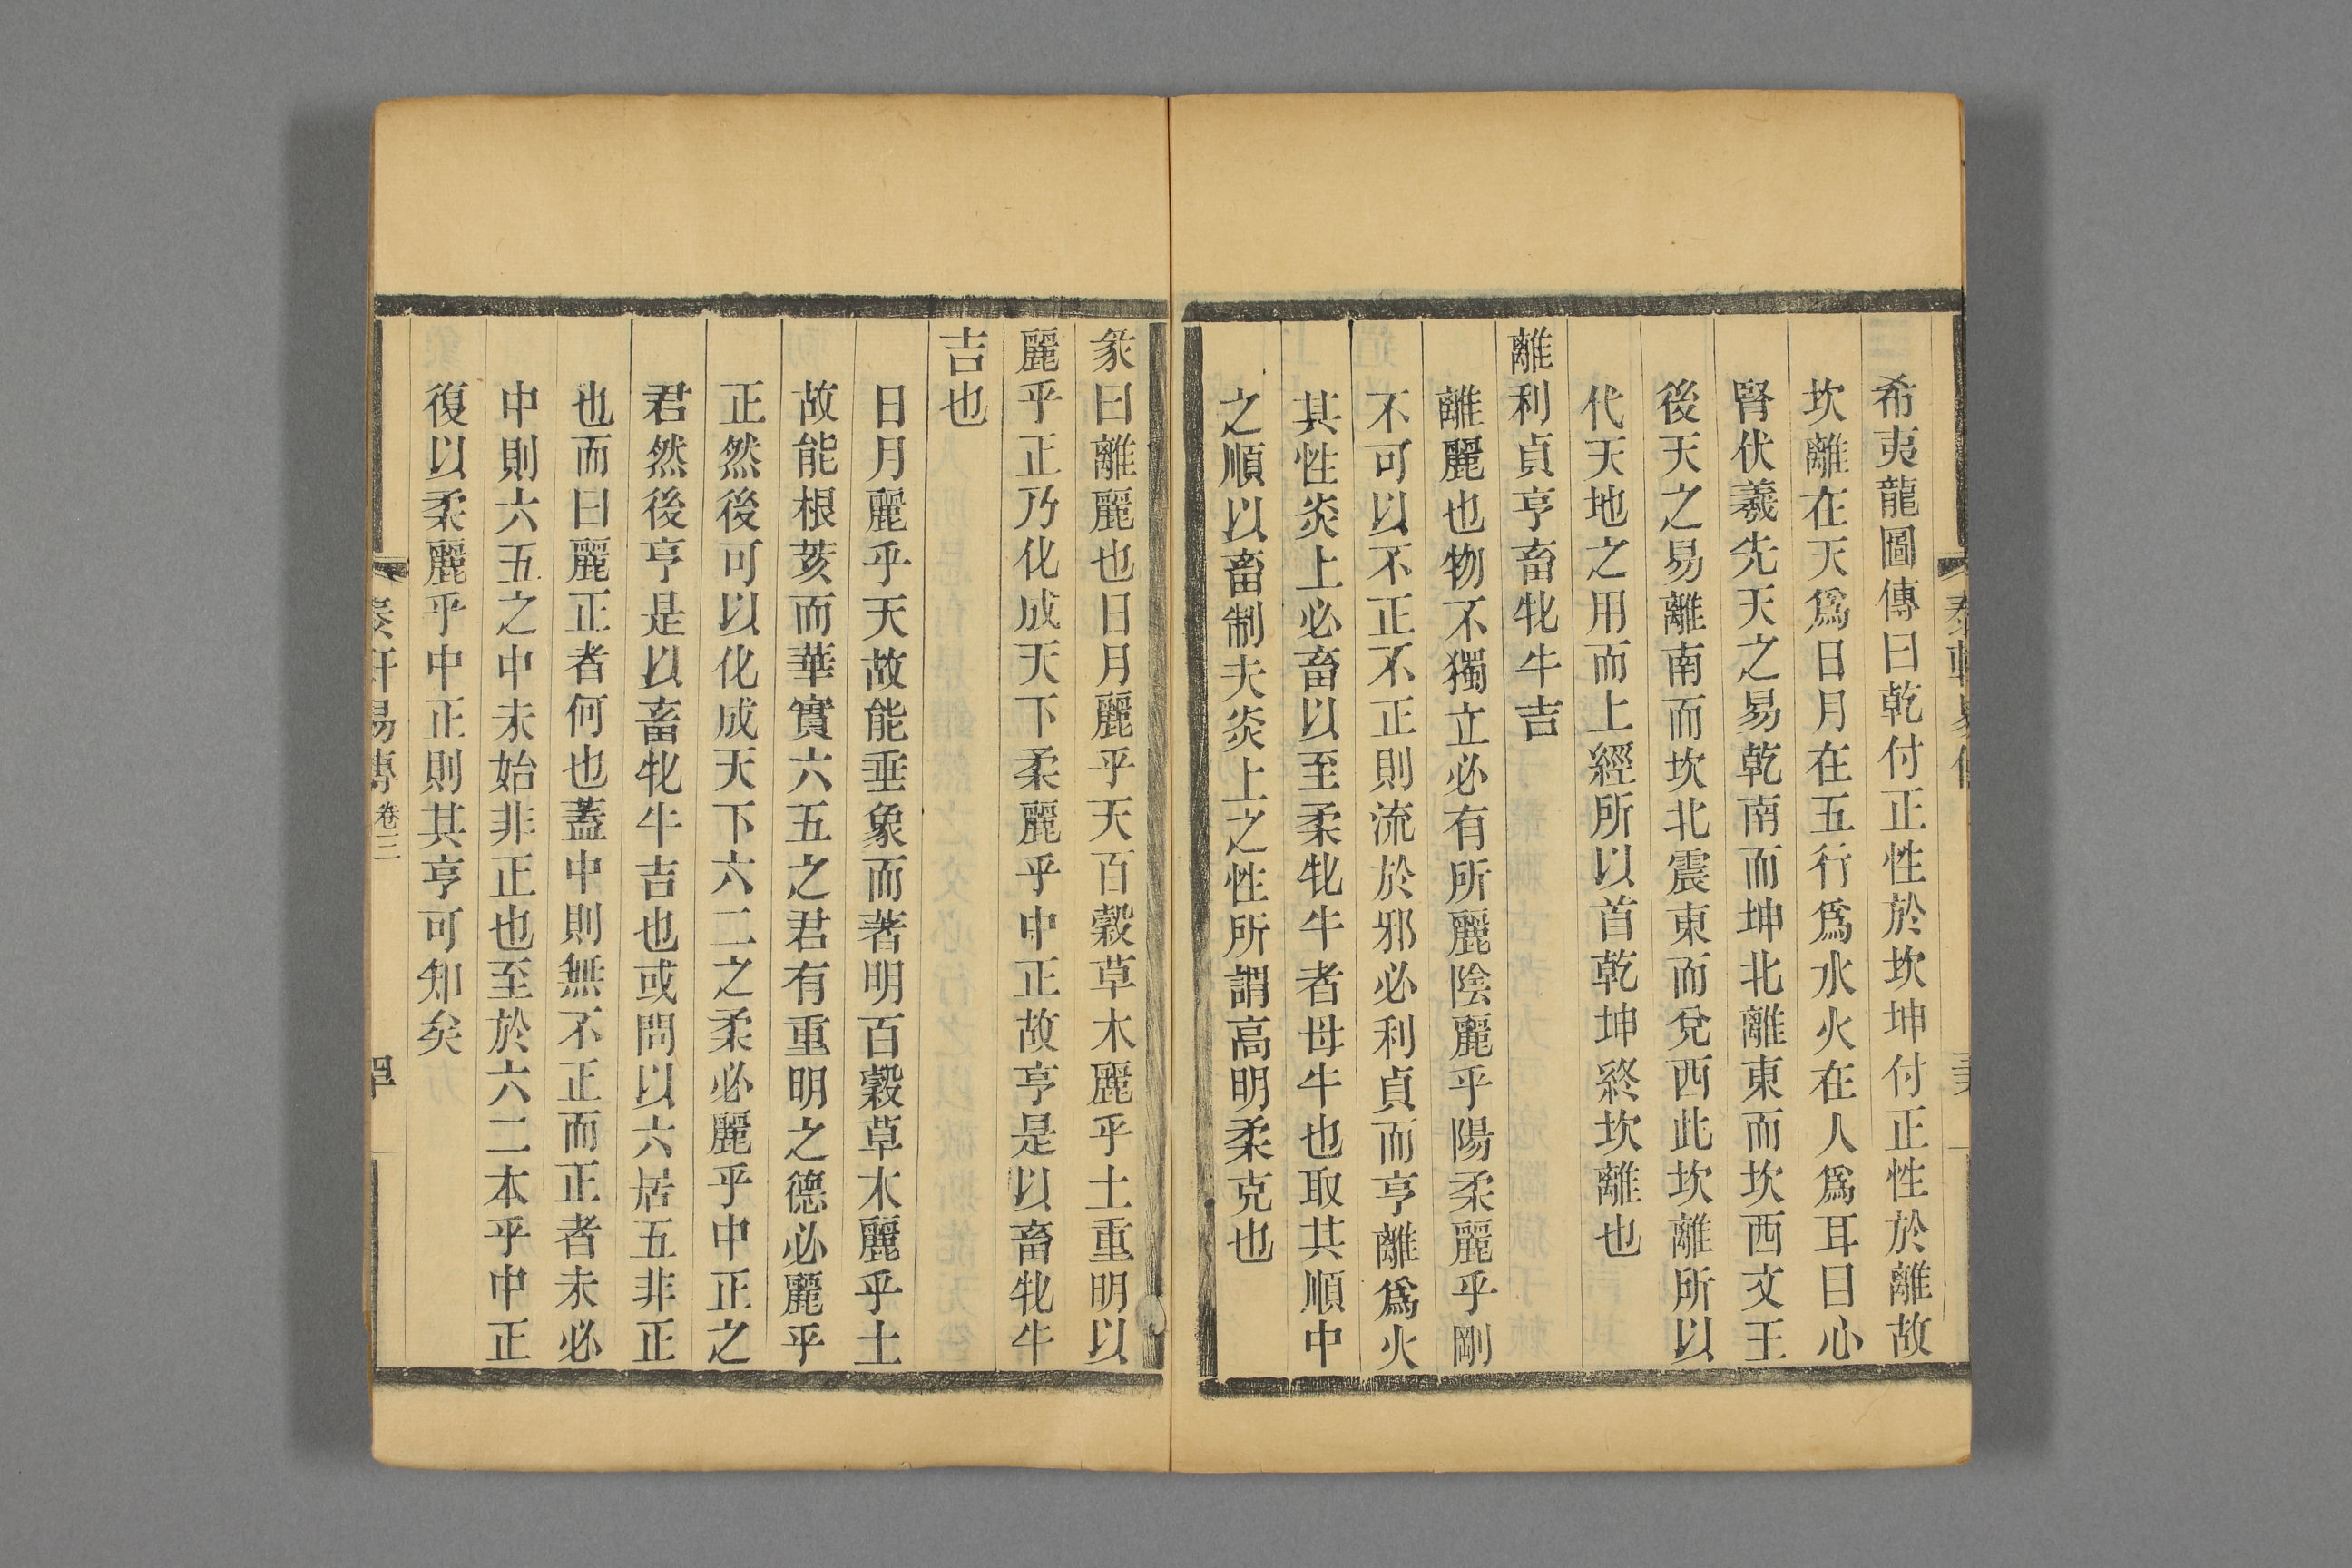 希夷龍圖傳曰乾付正性於坎坤付正性於離故
坎離在天爲日月在五行爲水火在人爲耳目心
腎伏羲先天之易乾南而坤北離東而坎西文王
後天之易離南而坎北震東而兌西此坎離所以
代天地之用而上經所以首乾坤終坎離也
離利貞亨畜牝牛吉
離麗也物不獨立必有所麗陰麗乎陽柔麗乎剛
不可以不正不正則流於邪必利貞而亨離爲火
其性炎上必畜以至柔牝牛者母牛也取其順中
之順以畜制夫炎上之性所謂高明柔克也
彖曰離麗也日月麗乎天百穀草木麗乎土重明以
麗乎正乃化成天下柔麗乎中正故亨是以畜牝牛
吉也
日月麗乎天故能垂象而著明百穀草木麗乎土
故能根荄而華實六五之君有重明之德必麗乎
正然後可以化成天下六二之柔必麗乎中正之
君然後亨是以畜牝牛吉也或問以六居五非正
也而曰麗正者何也蓋中則無不正而正者未必
中則六五之中未始非正也至於六二本乎中正
復以柔麗乎中正則其亨可知矣
易傳 卷三